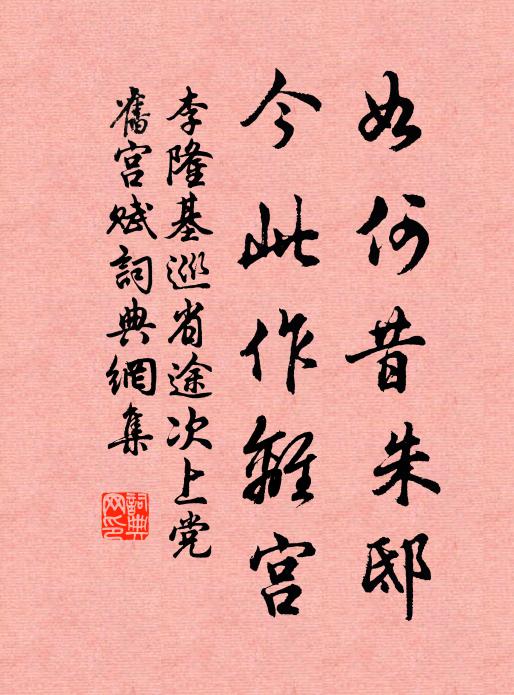 如何昔朱邸
今此作離宮
李隆基巡省途次上党
舊宮賦詞典網集
詞典
网印